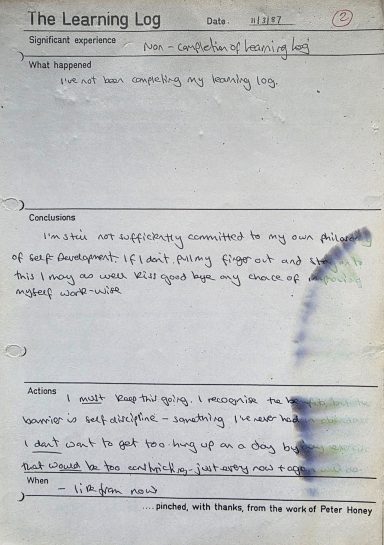 The Learning Log Date. 11/3/87 2
Significant experience Non-completion of learning log
What happened
I've not been completing my learning log.
Conclusions
I'm still not sufficiently committed to my own philosophy
of self Development. If I don't pull my finger out and to
this I may as well kiss good bye any chance of
myself work-wise
Actions
I must keep this going. I recognise the but the
barrier is self discipline - something I've never had
I don't want to get too hung up on a day by
that would be too constricting - just every now + again
When
- like from now
....pinched, with thanks, from the work of Peter Honey